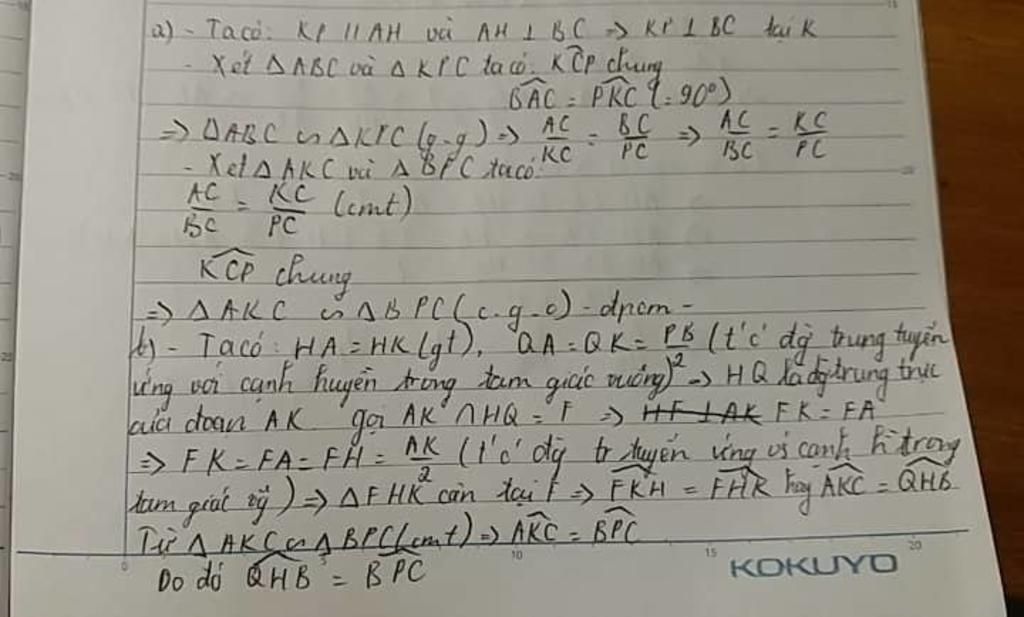 a) - Ta có: KP // AH và AH ⊥ BC => KP ⊥ BC tại K
- Xét ΔABC và ΔKPC ta có: K̂CP chung
B̂AC = P̂KC (= 90°)
=> ΔABC ∽ ΔKPC (g.g) => AC/KC = BC/PC => AC/BC = KC/PC
- Xét ΔAKC và ΔBPC ta có:
AC/BC = KC/PC (cmt)
K̂CP chung
=> ΔAKC ∽ ΔBPC (c.g.c) - đpcm -
b) - Ta có: HA = HK (gt), QA = QK = PB/2 (t/c đg trung tuyến
ứng với cạnh huyền trong tam giác vuông) => HQ là đg trung trực
của đoạn AK gọi AK ∩ HQ = F => HF ⊥ AK FK = FA
=> FK = FA = FH = AK/2 (t/c đg tr tuyến ứng vs cạnh h trong
tam giác vg) => ΔFHK cân tại F => F̂KH = F̂HK hay ÂKC = Q̂HB
Từ ΔAKC ∽ ΔBPC (cmt) => ÂKC = B̂PC
Do đó Q̂HB = B̂PC
0 5 10 15 20
KOKUYO